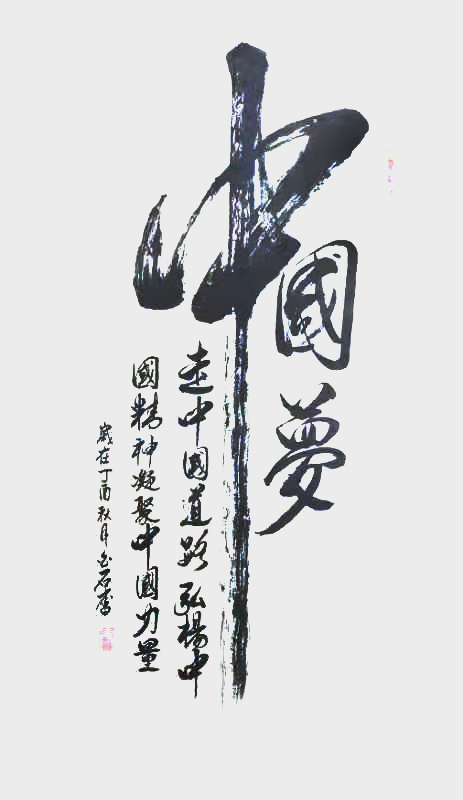 中國夢
走中國道路弘楊中
國精神凝聚中國力量
歲在丁酉秋月石